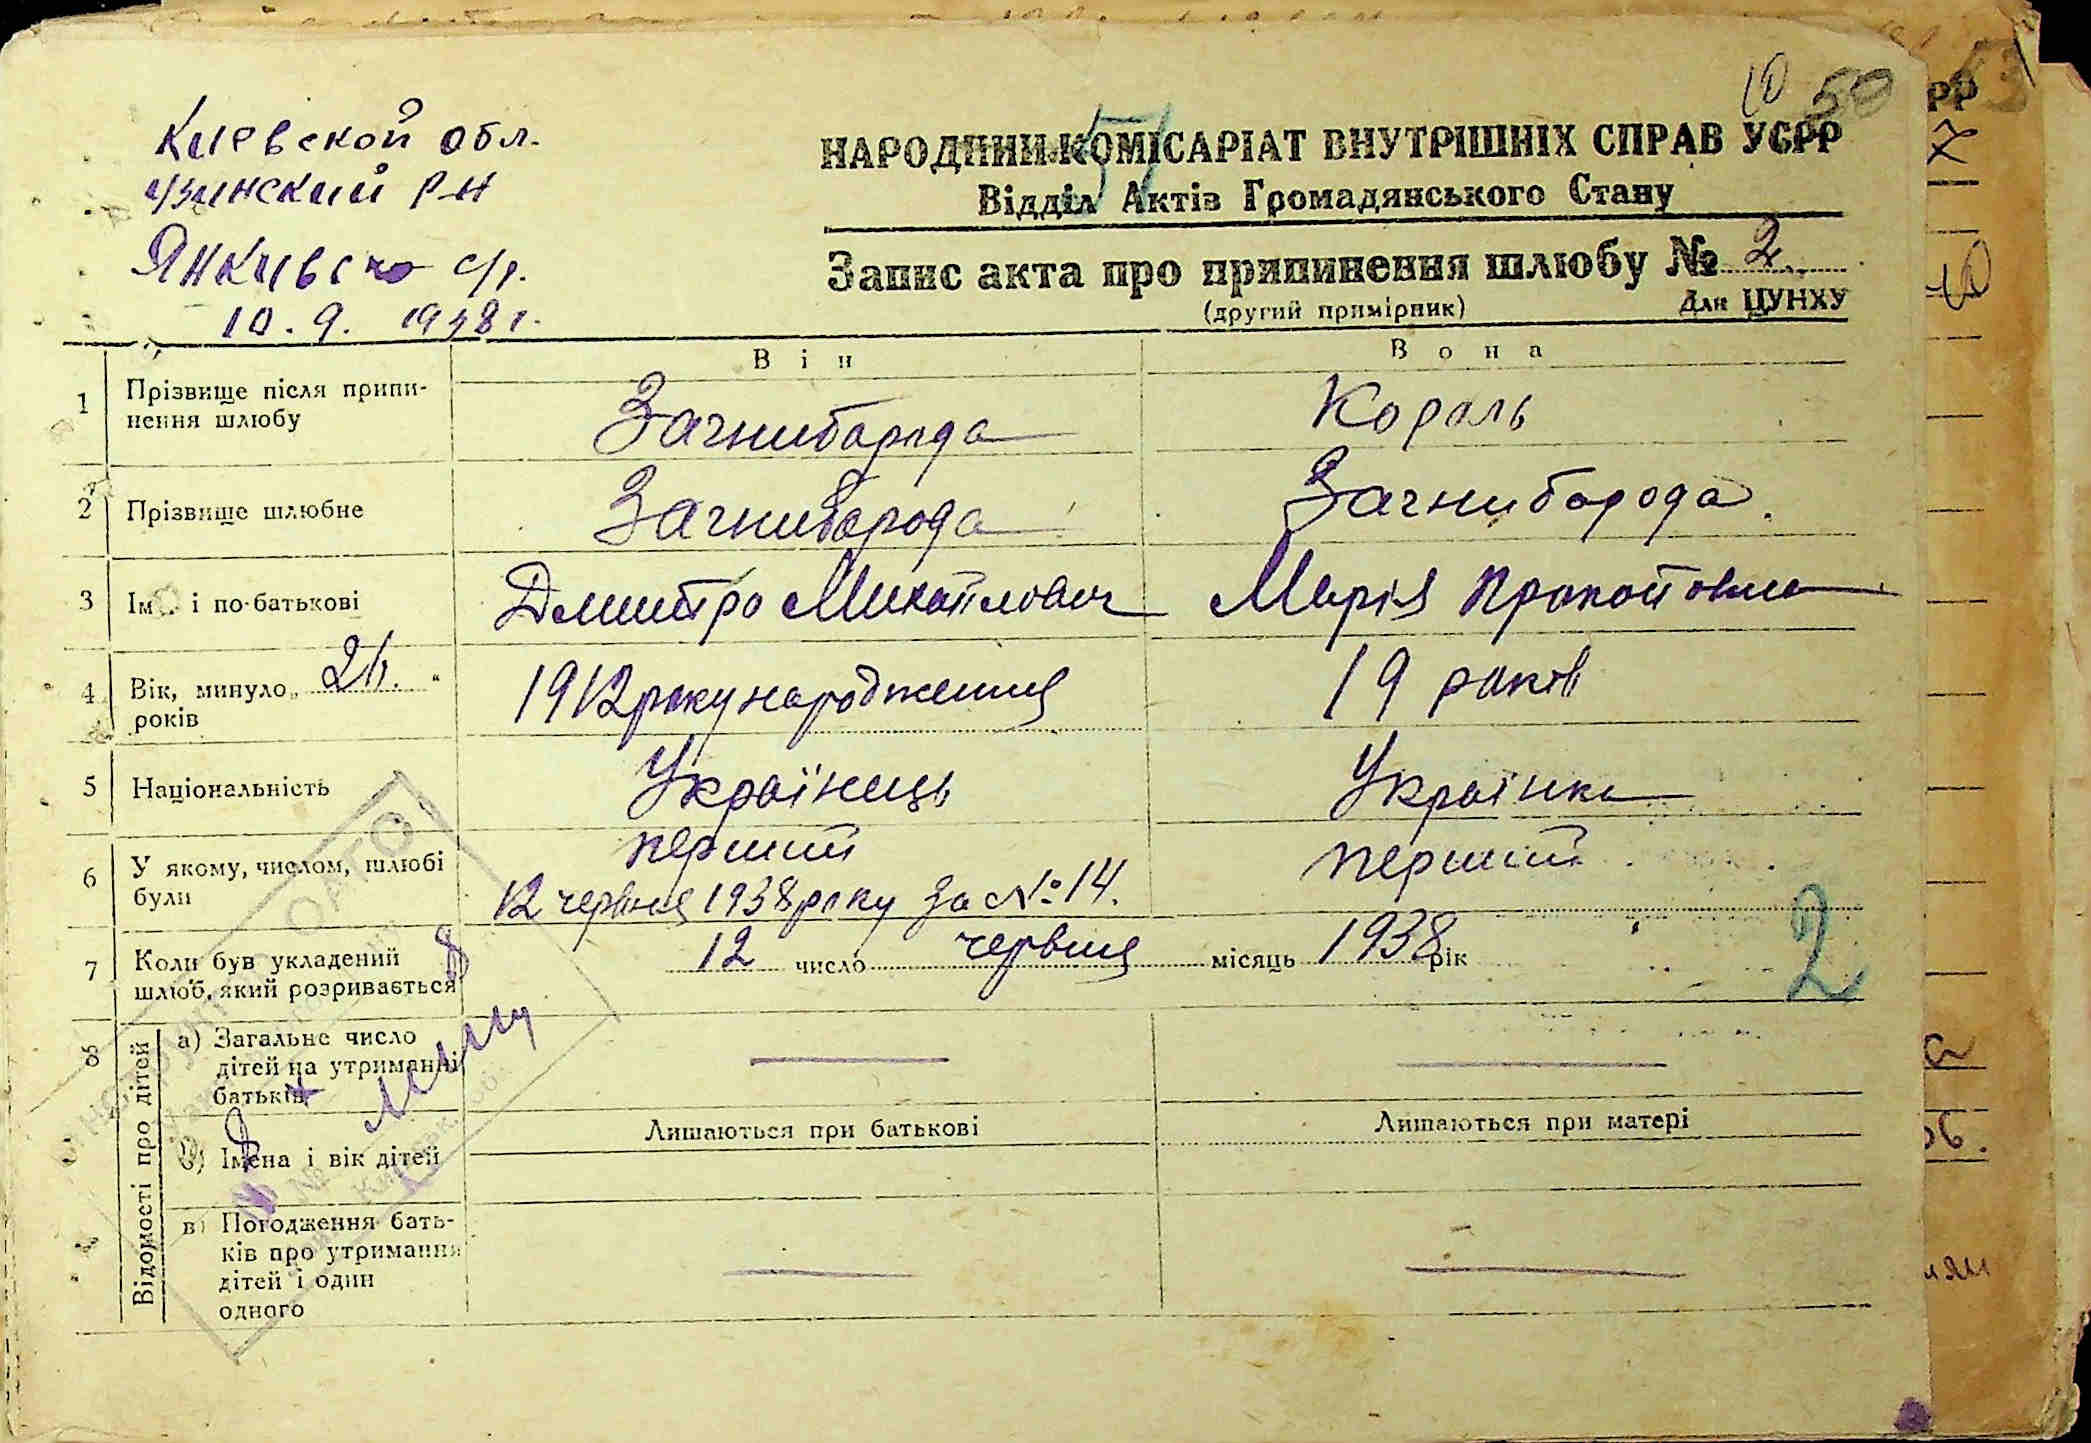 10 50
Киевской обл.
Узинский р-н
с/р.
10. 9. 1938 г.
НАРОДНИЙ КОМІСАРІАТ ВНУТРІШНІХ СПРАВ УСРР
51
Відділ Актів Громадянського Стану
Запис акта про припинення шлюбу № 2
(другий примірник) Для ЦУНХУ
Він Вона
1 Прізвище після припи-
нення шлюбу
Загнибарода Король
2 Прізвище шлюбне Загниборода Загниборода.
3 Ім'я і по-батькові Дмитро Михайлович Марія
4 Вік, минуло „ "
років
1912 року народження 19 років
5 Національність Українець Українка
6 У якому, числом, шлюбі
були
перший перший
12 червня 1938 року за №14.
7 Коли був укладений
шлюб, який розривається
12 число червня місяць 1938 рік
2
8 Відомості про дітей
а) Загальне число
дітей на утриманні
батьків
Лишаються при батькові Лишаються при матері
б) Імена і вік дітей
в) Погодження бать-
ків про утримання
дітей і один
одного